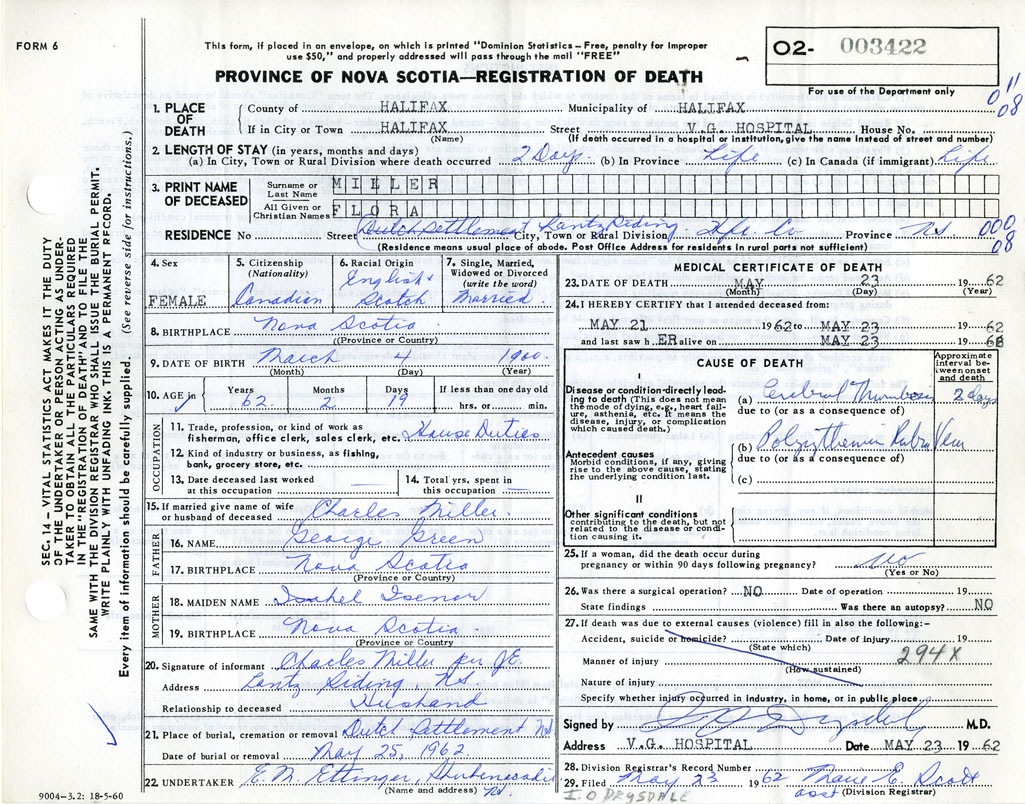 FORM 6
This form, if placed in an envelope, on which is printed "Dominion Statistics – Free, penalty for improper
use $50," and properly addressed will pass through the mail "FREE"
O2- 003422
For use of the Department only
PROVINCE OF NOVA SCOTIA—REGISTRATION OF DEATH
11
0 08
1. PLACE OF DEATH
County of HALIFAX Municipality of HALIFAX
If in City or Town HALIFAX Street V.G. HOSPITAL House No.
(Name) (If death occurred in a hospital or institution, give the name instead of street and number)
2. LENGTH OF STAY (in years, months and days)
(a) In City, Town or Rural Division where death occurred 2 Days. (b) In Province Life (c) In Canada (if immigrant) Life
3. PRINT NAME OF DECEASED
Surname or Last Name MILLER
All Given or Christian Names FLORA
RESIDENCE No Street Dutch Settlement Lantz Siding. Hfx. Co City, Town or Rural Division Province NS
000
08
(Residence means usual place of abode. Post Office Address for residents in rural parts not sufficient)
4. Sex
FEMALE
5. Citizenship
(Nationality)
Canadian
6. Racial Origin
English &
Scotch
7. Single, Married,
Widowed or Divorced
(write the word)
Married.
8. BIRTHPLACE Nova Scotia.
(Province or Country)
9. DATE OF BIRTH March 4 1900.
(Month) (Day) (Year)
10. AGE in
Years 62. Months 2 Days 19 If less than one day old
hrs. or min.
OCCUPATION
11. Trade, profession, or kind of work as
fisherman, office clerk, sales clerk, etc. House Duties
12. Kind of industry or business, as fishing,
bank, grocery store, etc.
13. Date deceased last worked
at this occupation
14. Total yrs. spent in
this occupation
15. If married give name of wife
or husband of deceased Charles Miller.
FATHER
16. NAME George Green
17. BIRTHPLACE Nova Scotia
(Province or Country)
MOTHER
18. MAIDEN NAME Isabel Isenor
19. BIRTHPLACE Nova Scotia.
(Province or Country)
20. Signature of informant Charles Miller per J.E.
Address Lantz Siding, NS.
Relationship to deceased Husband
21. Place of burial, cremation or removal Dutch Settlement NS.
Date of burial or removal May 25, 1962
22. UNDERTAKER E. M. Ettinger, Shubenacadie
(Name and address) NS.
MEDICAL CERTIFICATE OF DEATH
23. DATE OF DEATH MAY 23 1962
(Month) (Day) (Year)
24. I HEREBY CERTIFY that I attended deceased from:
MAY 21 1962 to MAY 23 1962
and last saw h ER alive on MAY 23 19 62
CAUSE OF DEATH
Approximate
interval between onset
and death
I
Disease or condition-directly leading
to death (This does not mean
the mode of dying, e.g., heart failure,
asthenia, etc. It means the
disease, injury, or complication
which caused death.)
(a) Cerebral Thrombosis 2 days
due to (or as a consequence of)
Antecedent causes
Morbid conditions, if any, giving
rise to the above cause, stating
the underlying condition last.
(b) Polycythemia Rubra Vera
due to (or as a consequence of)
(c)
II
Other significant conditions
contributing to the death, but not
related to the disease or condition
causing it.
25. If a woman, did the death occur during
pregnancy or within 90 days following pregnancy? No
(Yes or No)
26. Was there a surgical operation? NO Date of operation 19
State findings Was there an autopsy? NO
27. If death was due to external causes (violence) fill in also the following:–
Accident, suicide or homicide? Date of injury 19
(State which)
Manner of injury 294X
(How sustained)
Nature of injury
Specify whether injury occurred in industry, in home, or in public place
Signed by I O Drysdale M.D.
Address V.G. HOSPITAL Date MAY 23 19 62
28. Division Registrar's Record Number
29. Filed May 23 1962 Marie E. Scott
asst (Division Registrar)
I. O DRYSDALE
SEC. 14 – VITAL STATISTICS ACT MAKES IT THE DUTY
OF THE UNDERTAKER OR PERSON ACTING AS UNDER-
TAKER TO OBTAIN ALL THE PARTICULARS REQUIRED
IN THE "REGISTRATION OF DEATH" AND TO FILE THE
SAME WITH THE DIVISION REGISTRAR WHO SHALL ISSUE THE BURIAL PERMIT.
WRITE PLAINLY WITH UNFADING INK. THIS IS A PERMANENT RECORD.
Every item of information should be carefully supplied. (See reverse side for instructions.)
9004–3.2: 18-5-60